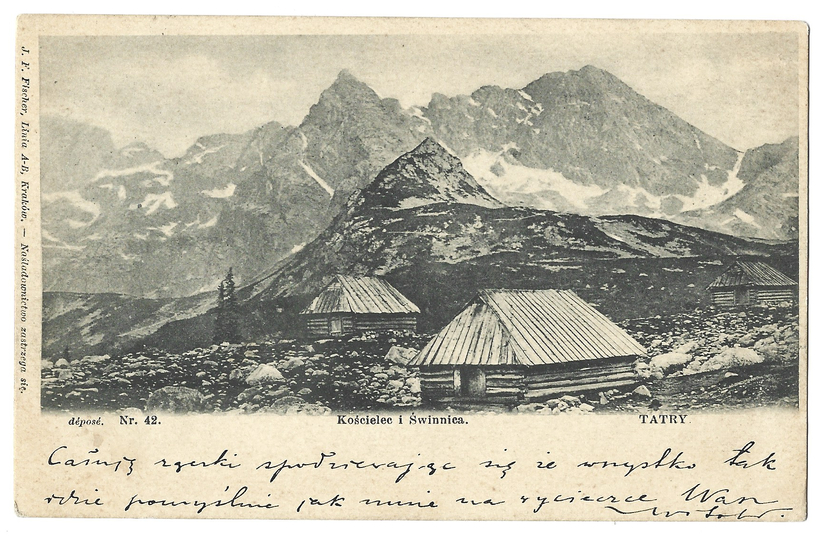 J. F. Fischer, Linia A-B, Kraków. — Naśladownictwo zastrzega się.
déposé. Nr. 42. Kościelec i Świnnica. TATRY.
Całuję rączki spodziewając się że wszystko tak
idzie pomyślnie jak mnie na wycieczce Wasz
Witold.